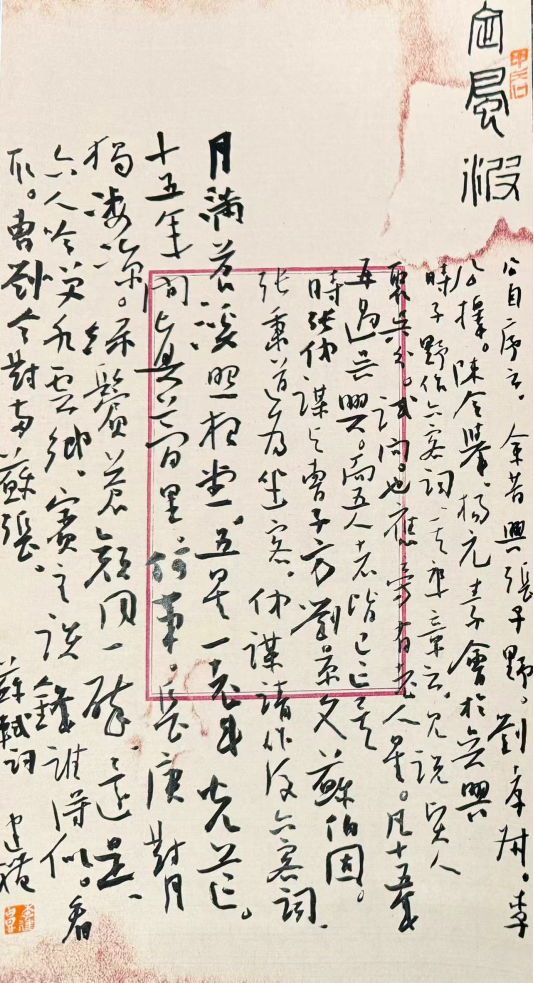 定風波
公自序云。余昔與張子野。劉孝叔。李
公擇。陳令舉。楊元素會於吳興
時子野作六客詞。其卒章云。見說賢人
聚吳分。試問。也應旁有老人星。凡十五年
再過吳興。而五人者皆已亡矣
時張仲謀與曹子方劉景文蘇伯固。
張秉道為坐客。仲謀請作後六客詞。
月滿苕溪照夜堂。五星一老斗光芒。
十五年間真夢里。何事。長庚對月
獨淒涼。綠鬢蒼顏同一醉。還是、
六人吟笑水雲鄉。賓主談鋒誰得似。看
取。曹劉今對兩蘇張、
蘇軾詞